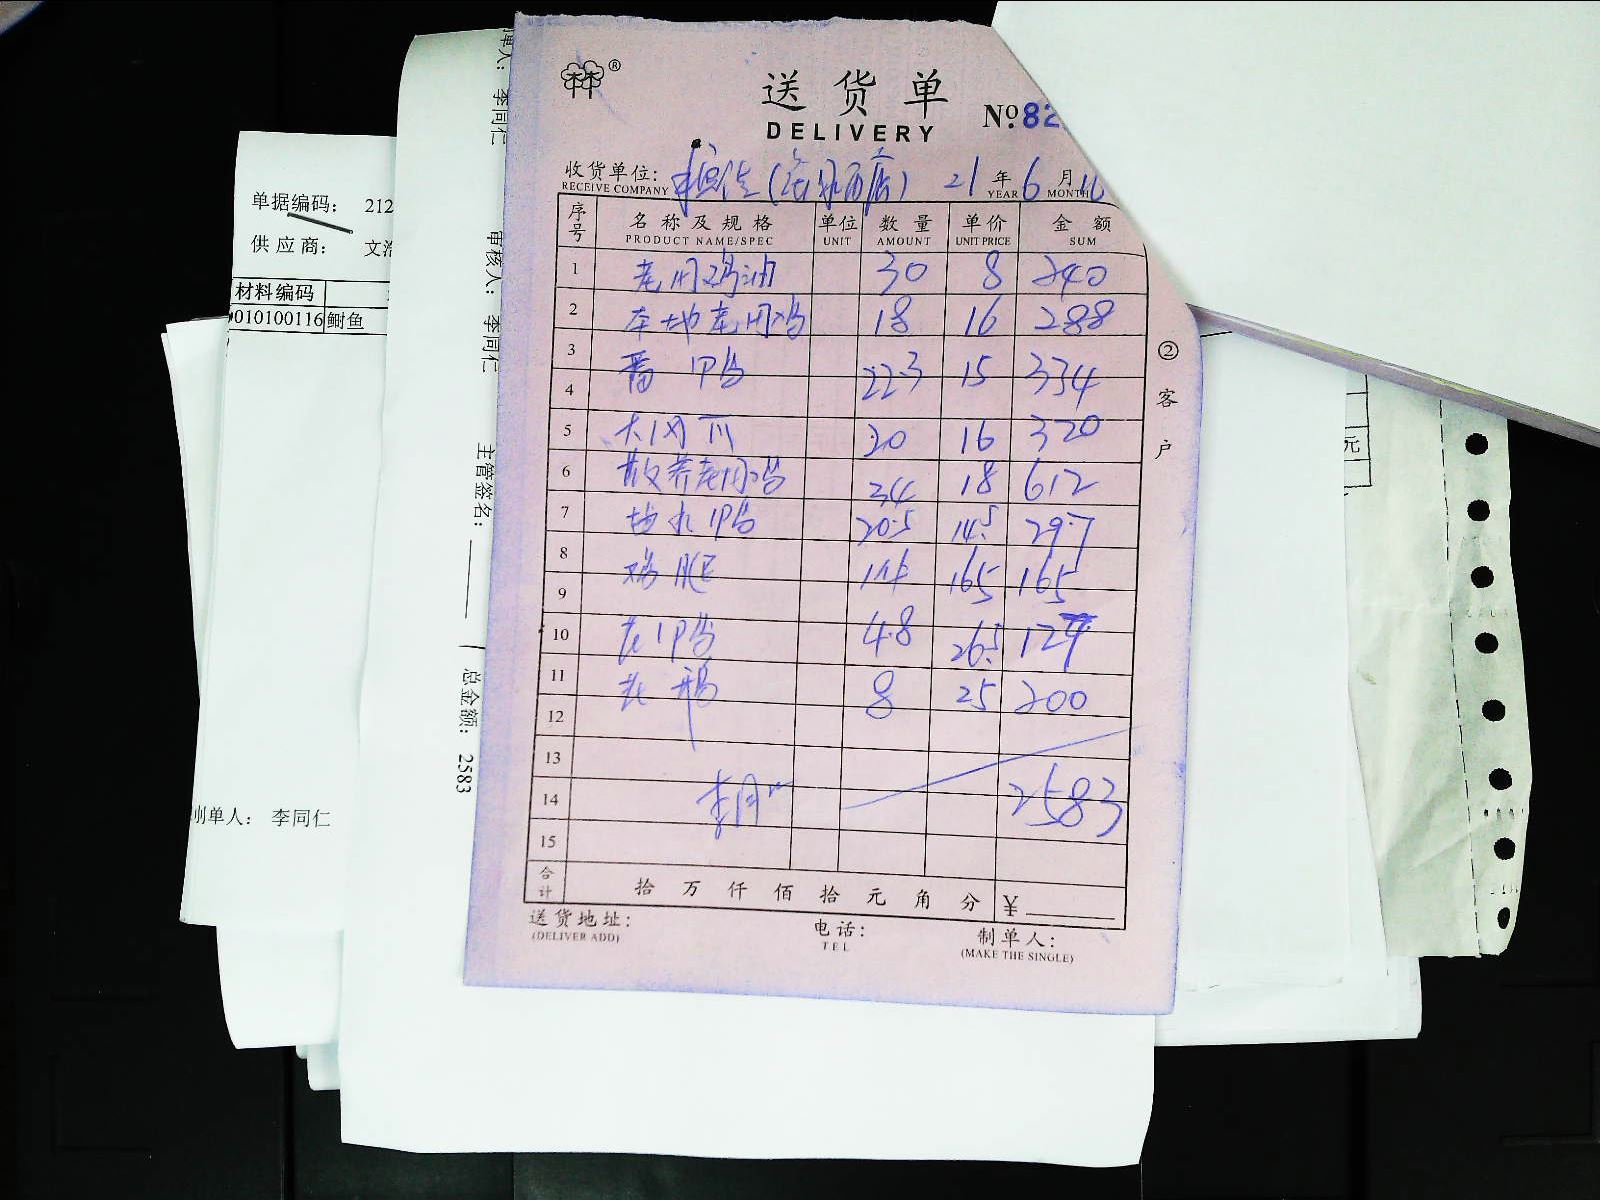 ®
送货单
DELIVERY
№82
收货单位: 21 年 6 月
RECEIVE COMPANY YEAR MONTH
序号 名称及规格 单位 数量 单价 金额
PRODUCT NAME/SPEC UNIT AMOUNT UNIT PRICE SUM
1 老母鸡油 30 8 240
2 本地老母鸡 18 16 288
3 番鸭 22.3 15 334
4
5 20 16 320
6 散养老母鸡 34 18 612
7 地水鸭 20.5 14.5 297
8 鸡脏 165 165
9
10 老鸭 4.8 26.5 127
11 老鹅 8 25 200
12
13
14 2583
15
合计 拾万仟佰拾元角分 ¥
送货地址: 电话: 制单人:
(DELIVER ADD) TEL (MAKE THE SINGLE)
②客户
单据编码: 212
供应商:
材料编码
010100116 鲥鱼
制单人: 李同仁
制单人: 李同仁
审核人: 李同仁
主管签名:
总金额: 2583
元